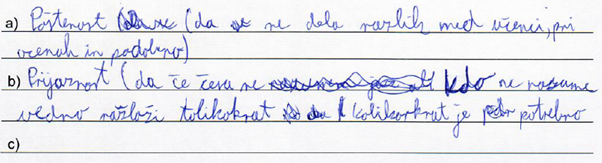 a) Poštenost (da ne dela razlik med učenci, pri
ocenah in podobno)
b) Prijaznost (da če česa ne kdo ne razume
vedno razloži tolikokrat kolikorkrat je potrebno
c)